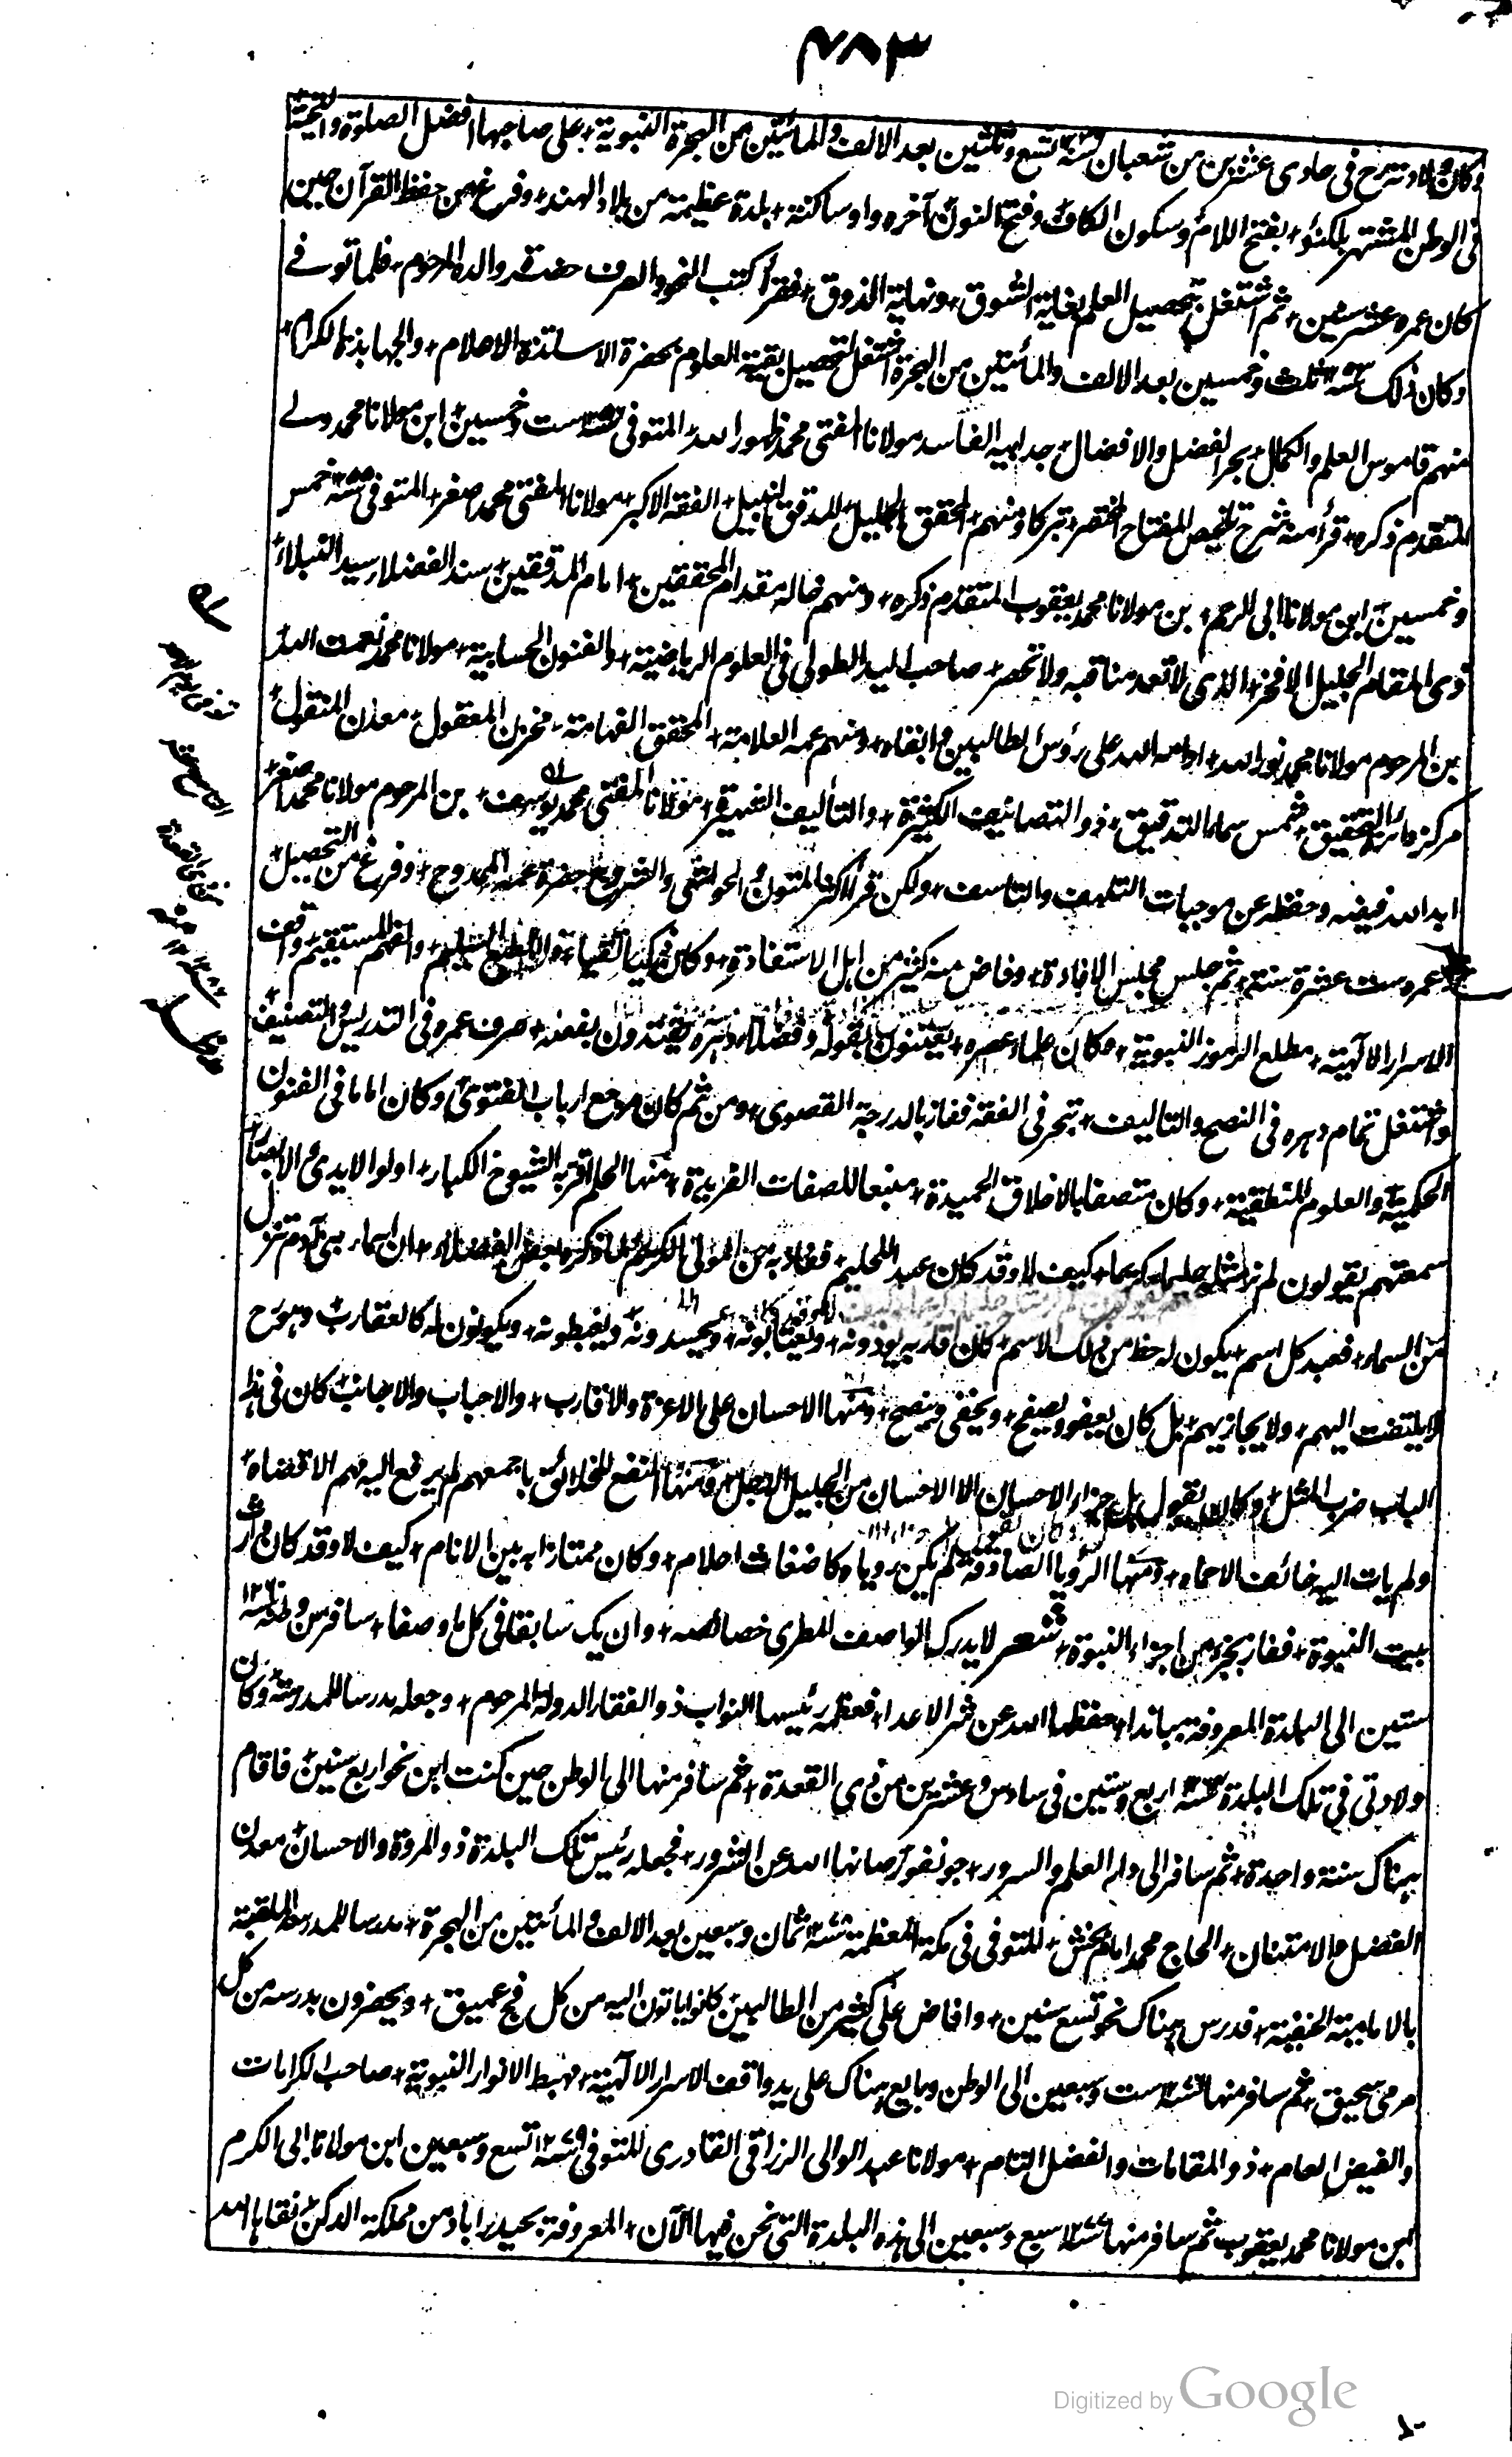 ٤٨٣
وكان ولادته رح فى حادى عشرين من شعبان سنة ١٢٣٩ تسع وثلثين بعد الالف والمائتين من الهجرة النبوية + على صاحبها افضل الصلوة والتحية
فى الوطن المشتهر بلكنؤ + بفتح اللام وسكون الكاف وفتح النون آخره واو ساكنة + بلدة عظيمة من بلاد الهند + وفرغ من حفظ القرآن حين
كان عمره عشر سنين + ثم اشتغل بتحصيل العلم بغاية الشوق + ونهاية الذوق + فقرأ كتب النحو والصرف حضرة والده المرحوم + فلما توفے
وكان ذلك سنة ١٢٥٣ ثلث وخمسين بعد الالف والمائتين من الهجرة اشتغل لتحصيل بقية العلوم بحضرة الاساتذة الاعلام + والجهابذة الكرام +
منهم قاموس العلم والكمال + بحر الفضل والافضال + جد ابيه الفاسد مولانا المفتى محمد ظهور الله + المتوفى سنة ١٢٥٦ ست وخمسين + ابن مولانا محمد ولے
المتقدم ذكره + قرأ منه شرح تلخيص المفتاح المختصر + تبركا ومنهم المحقق الجليل + المدقق النبيل + الفقه الاكبر + مولانا المفتى محمد اصغر + المتوفى سنة ١٢٥٥ خمس
وخمسين + ابن مولانا ابى الرحم + بن مولانا محمد يعقوب المتقدم ذكره + ومنهم خاله مقدام المحققين + امام المدققين + سند الفضلاء سيد النبلاء +
ذى المقام الجليل الافخر + الذى لا تعد مناقبه ولا تحصر + صاحب اليد الطولى فى العلوم الرياضية + والفنون الحسابية + مولانا محمد نعمت الله
بن المرحوم مولانا محمد نور الله + ادامه الله على رؤس الطالبين وابقاه + ومنهم عمه العلامة + المحقق الفهامة + مخزن المعقول + معدن المنقول +
مركز دائرة التحقيق + شمس سماء التدقيق + ذو التصانيف الكثيرة + والتأليف الشهيرة + مولانا المفتى محمد يوسف + بن المرحوم مولانا محمد اصغر +
ابد الله فيضه وحفظه عن موجبات التلهف والتاسف + ولكن قرأ اكثر المتون والحواشى والشروح حضرة عمه الممدوح + وفرغ من التحصيل +
عمره ست عشرة سنة + ثم جلس مجلس الافادة + وفاض منه كثير من اهل الاستفادة + وكان ذكيا تقيا + والطبع السليم + والفهم المستقيم + واقف
الاسرار الالٰهية + مطلع الرموز النبوية + وكان علماء عصره + يعتنون بقوله وفضلاء دهره يقتدون بفعله + صرف عمره فى التدريس والتصنيف
واشتغل تمام دهره فى النصح والتاليف + تبحر فى الفقه ففاز بالدرجة القصوى + ومن ثم كان مرجع ارباب الفتوى + وكان اماما فى الفنون
الحكمية + والعلوم المنطقية + وكان متصفا بالاخلاق الحميدة + منبعا للصفات الفريدة + منها الحلم اقر به الشيوخ الكبار + اولوا الايدى والابصار +
سمعتهم يقولون لم نر مثله حليما كريما + كيف لا وقد كان عبد الحليم + ففاز به من المولى الكريم لما ذكره بعض الفضلاء + ان اسماء بنى آدم تنزل
من السماء + فعبد كل اسم + يكون له حظ من ذلك الاسم + كان اقاربه يوذونه + ويغتابونه + ويحسدونه + ويغبطونه + ويكونون له كالعقارب + وهو رح
لا يلتفت اليهم + ولا يجازيهم + بل كان يعفو ويصفح + ويخفى وينصح + ومنها الاحسان على الاعزة والاقارب + والاحباب والاجانب + كان فى هذا
الباب ضرب المثل + وكان يقول هل جزاء الاحسان الا الاحسان من الجليل الاجل + ومنها النفع للخلائق باجمعهم لم يرفع اليه مهم الا قضاه +
ولم يات اليه خائف الا حماه + ومنها الرؤيا الصادقة + لم يكن روياه كاضغاث احلام + وكان ممتازا به بين الانام + كيف لا وقد كان وارث
بيت النبوة + ففاز بجزء من اجزاء النبوة + شعر لا يدرك الواصف المطرى خصائصه + وان يك سابقا فى كل ما وصفا + سافر من وطنه سنة ١٢٦٠
ستين الى البلدة المعروفة بباندا + حفظها الله عن شر الاعداء + فعظمه رئيسها النواب ذو الفقار الدولة المرحوم + وجعله مدرسا للمدرسة + وكان
ولادتى فى تلك البلدة سنة ١٢٦٤ اربع وستين فى سادس وعشرين من ذى القعدة + ثم سافر منها الى الوطن حين كنت ابن نحو اربع سنين + فاقام
هناك سنة واحدة + ثم سافر الى دار العلم والسرور + جونفور صانها الله عن الشرور + فجعله رئيس تلك البلدة ذو المروة والاحسان + معدن
الفضل والامتنان + الحاج محمد امام بخش + المتوفى فى مكة المعظمة سنة ١٢٧٨ ثمان وسبعين بعد الالف والمائتين من الهجرة + مدرسا للمدرسة الملقبة
بالامامية الحنفية + فدرس هناك نحو تسع سنين + وافاض على كثير من الطالبين + كانوا ياتون اليه من كل فج عميق + ويحضرون بدرسه من كل
مرمى سحيق + ثم سافر منها سنة ١٢٧٦ ست وسبعين الى الوطن وبايع هناك على يد واقف الاسرار الالٰهية + مهبط الانوار النبوية + صاحب الكرامات
والفيض العام + ذو المقامات والفضل التام + مولانا عبد الوالى الرزاقى القادرى المتوفى سنة ١٢٧٩ تسع وسبعين ابن مولانا ابى الكرم
ابن مولانا محمد يعقوب ثم سافر منها سنة ١٢٧٧ سبع وسبعين الى هذه البلدة التى نحن فيها الآن + المعروفة بحيدراباد من مملكة الدكن + نقاها الله
Digitized by Google